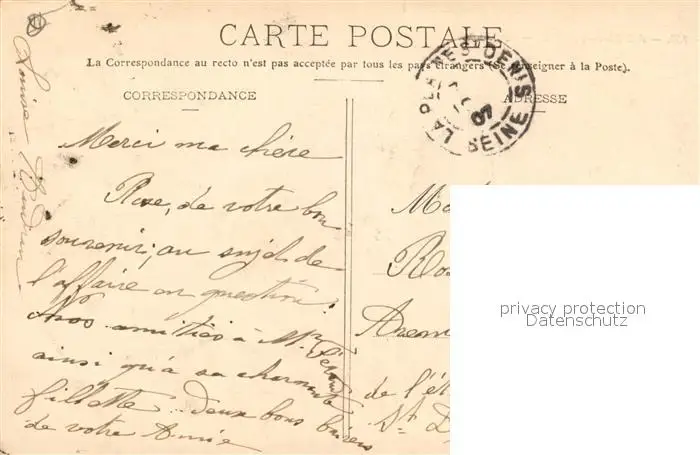 CARTE POSTALE
La Correspondance au recto n'est pas acceptée par tous les pays étrangers (Se renseigner à la Poste).
CORRESPONDANCE
ADRESSE
LA PL ST DENIS
07
SEINE
Louise
Merci ma chère
Rose, de votre bon
souvenir; au sujet de
l'affaire en question!
nos amitiés à Mr
ainsi qu'à sa charmante
fillette. deux bons baisers
de votre Amie
Ma
Ros
Aven
de l'ét
St D
privacy protection
Datenschutz